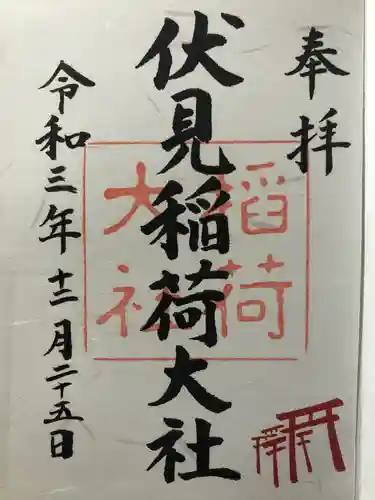 奉拝
伏見稲荷大社
稲荷
大社
令和三年十二月二十五日